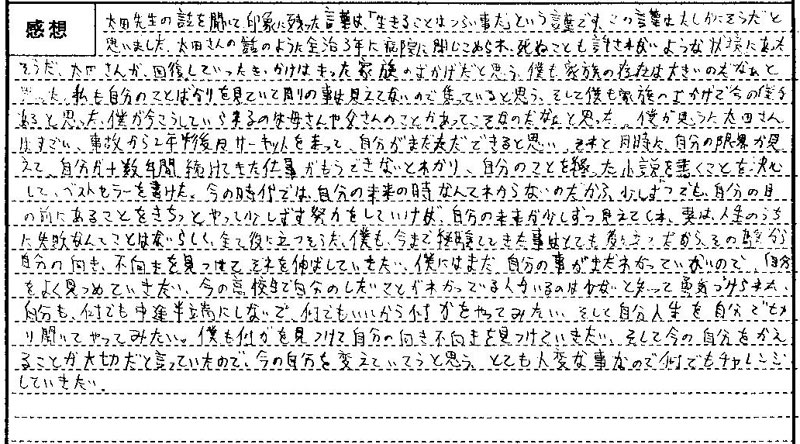 感想
太田先生の話を聞いて印象に残った言葉は「生きることはつぶ事だ」という言葉です。この言葉はたしかにそうだと
思いました。太田さんの話のように全治3年に病院に閉じこめられ、死ぬことも許されないような状境にあた
そうだ。太田さんが、回復していったきっかけはまった家族のおかげだと思う。僕も家族の存在は大きいのだなあと
った。私も自分のことばかりを見ていて周りの事は見えてないので焦っていると思う。そして僕も家族のおかげで今の僕が
あると思った。僕が今こうしていら来るのは母さんや父さんのことがあってこそなのだなと思った。僕が思うに太田さん
はすごい、事故から2年半後にサーキットを走って、自分がまだまだできると思い、それと同時に自分の限界が見
えて、自分が十数年間続けてきた仕事がもうできないとわかり、自分のことを綴った小説を書くことを決心
して、ベストセラーを書けた。今の時代では、自分の未来の時なんてわからないのだから、少しずつでも、自分の目
の前にあることをきちっとやって少しずす努力をしていけば、自分の未来が少しずつ見えてくる。要は、人生のうち
に失敗なんてことはないらしく、全て役に立つそうだ。僕も、今まで経験してきた事はとても役立つだから、その経験から
自分の向き、不向きを見つけて、それを伸ばしていきたい。僕にはまだ自分の事がまだわかっていないので、「自分
をよく見つめていきたい。今の高校生で自分のしたいことがわかっている人がいるのは少ないと知って勇気づけられた
自分も、何でも中途半端にしないで、何でもいいから何かをやってみたい。そして自分人生を自分で切
り開いてやってみたい。僕も何かを見つけて自分の向き不向きを見つけていきたい。そして今の自分をかえ
ることが大切だと言っていたので、今の自分を変えていこうと思う。とても大変な事なので何でもチャレンジ
していきたい。